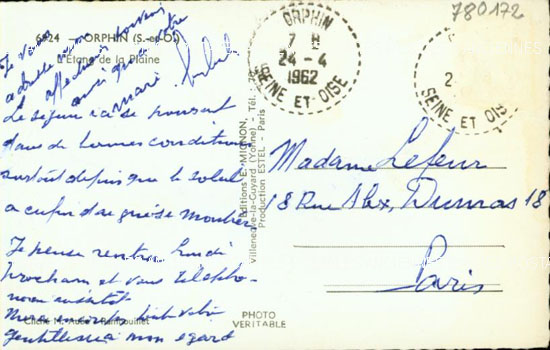 780172
6-24 - ORPHIN (S.-et-O.)
L'Etang de la Plaine
ORPHIN
7 H
24-4
1962
SEINE ET OISE
2
SEINE ET OISE
Je vous
affectueux
votre
mari
Le séjour ici se poursuit
dans de bonnes conditions
surtout depuis que le soleil
a enfin daigné se montrer
Je pense rentrer lundi
prochain et vous télépho-
nerai aussitôt
Merci encore pour votre
gentillesse à mon égard
Cliché M. Rambouillet
Editions E. MIGNON,
Villeneuve-la-Guyard (Yonne) - Tél.
Production ESTEL - Paris
PHOTO
VERITABLE
Madame Lefeur
18 Rue Alex, Dumas 18
Paris